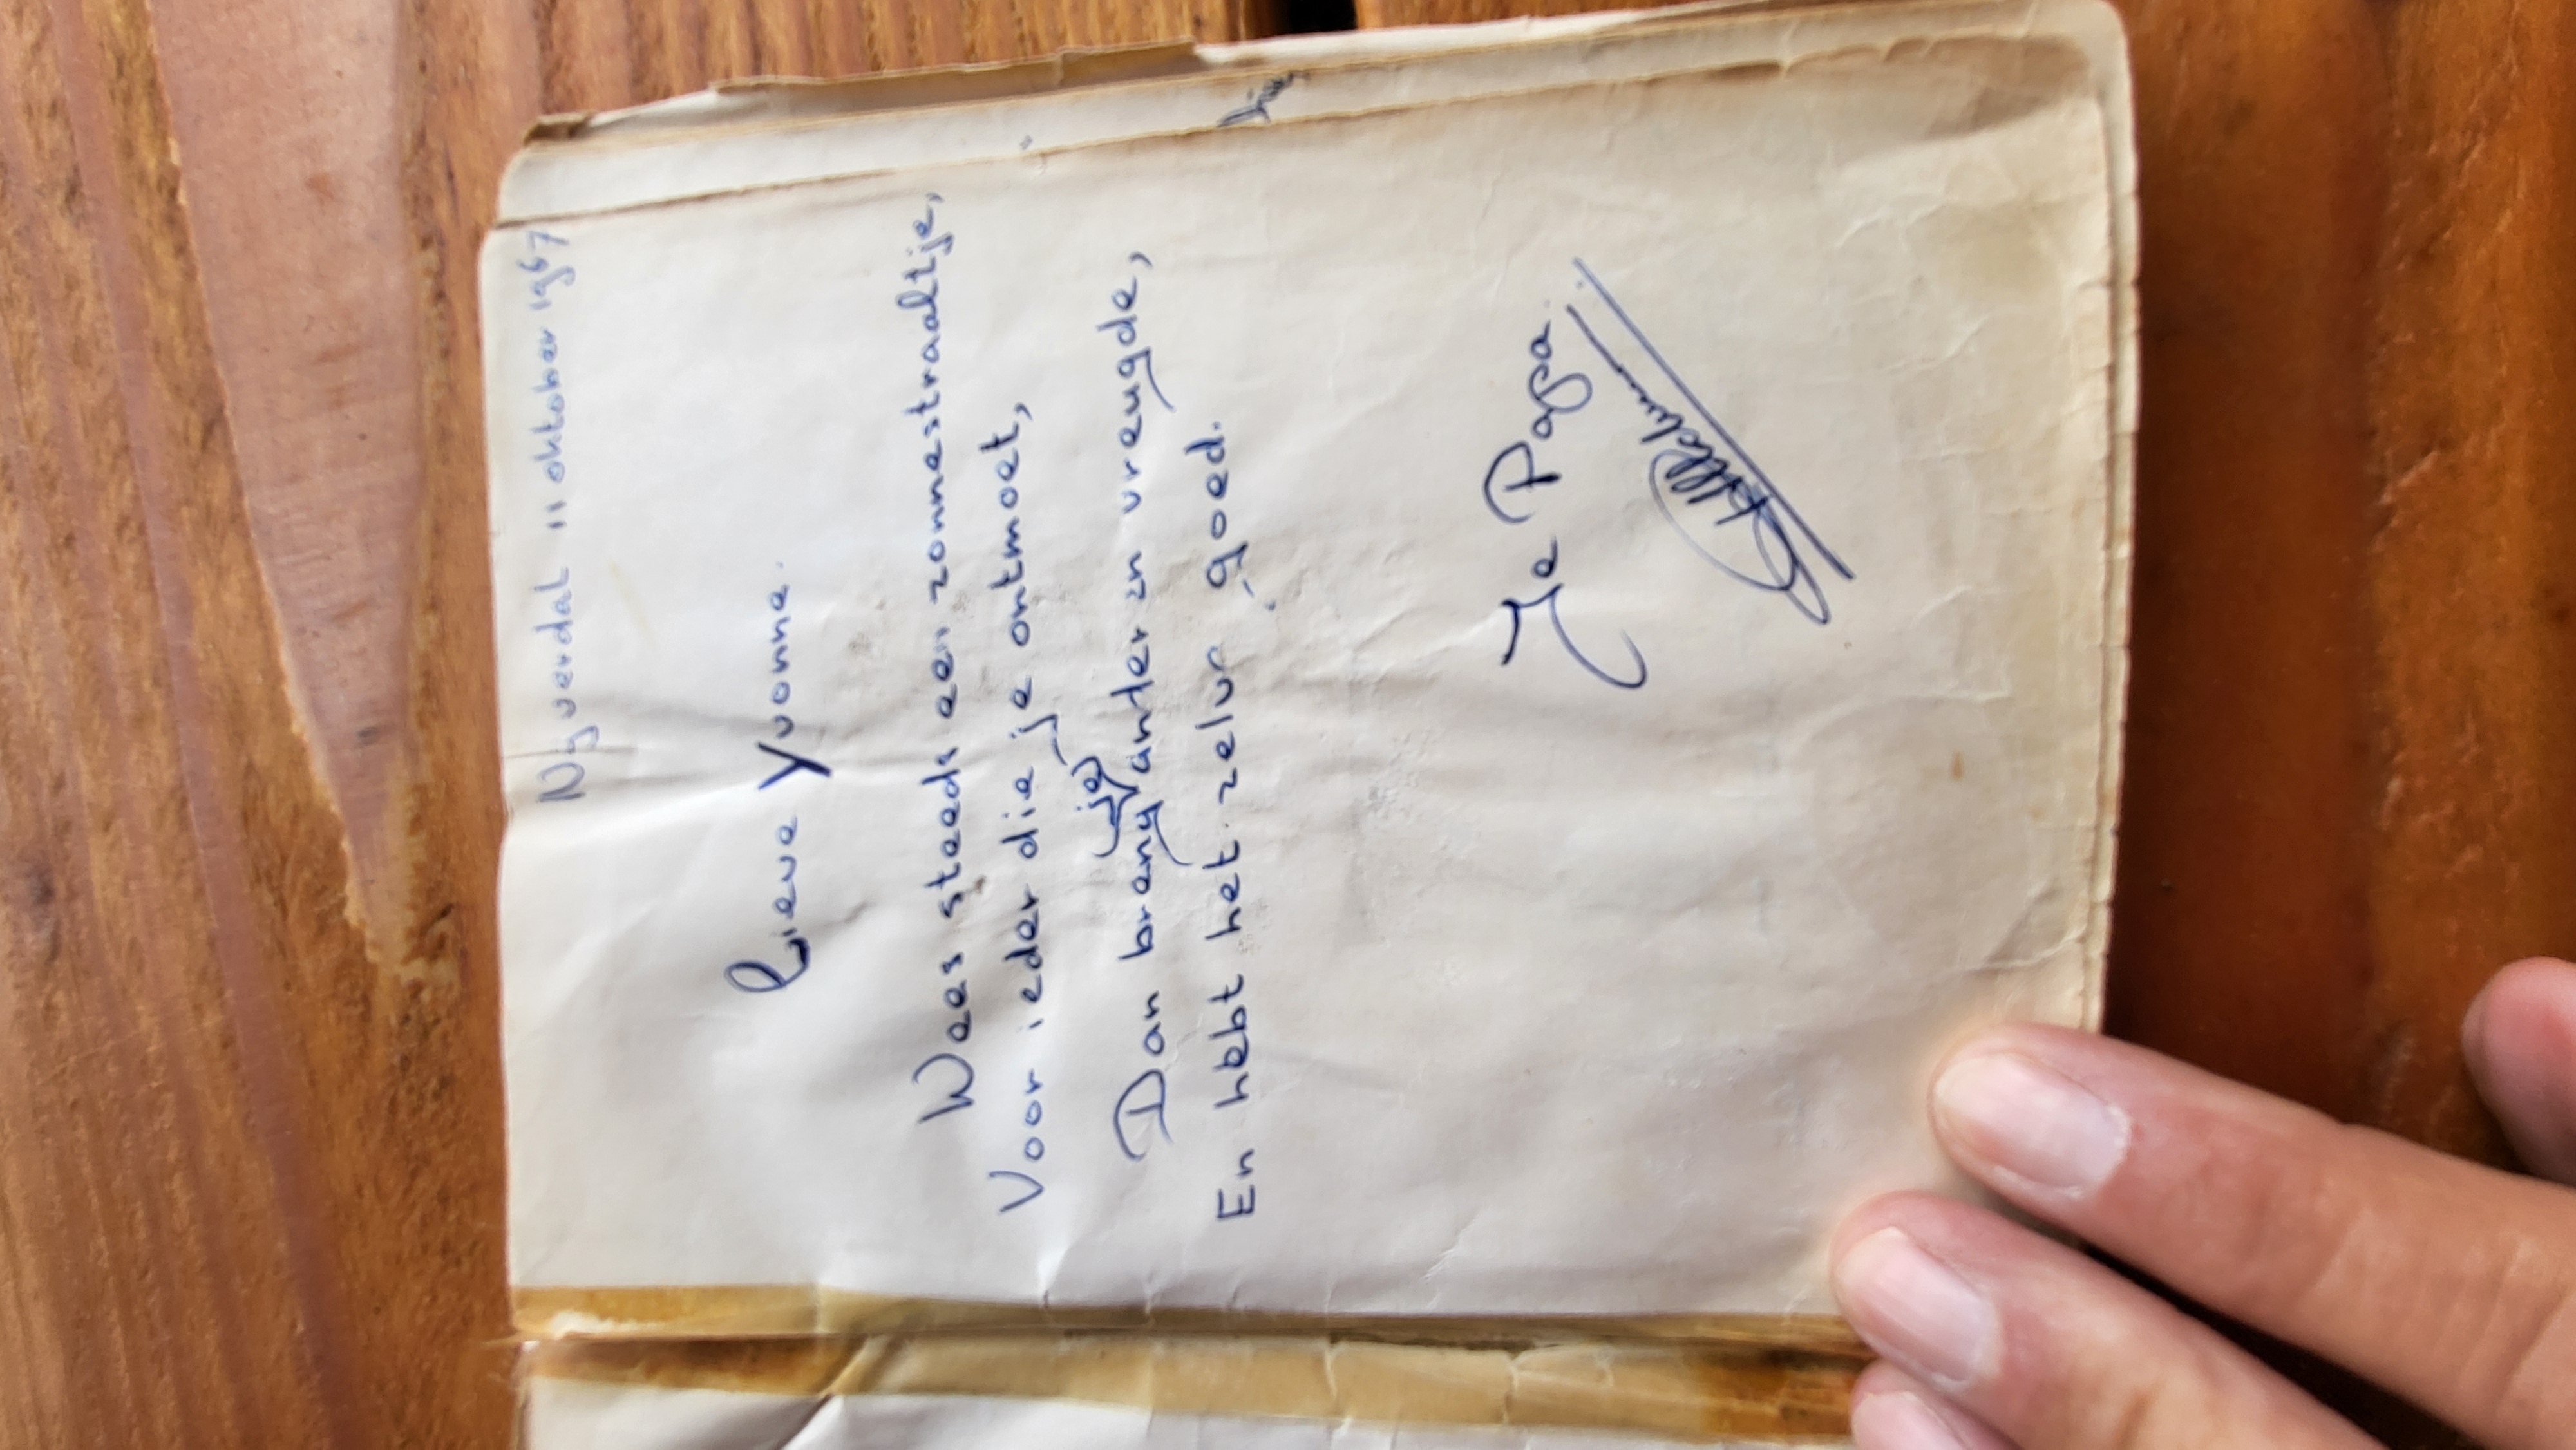 Nyverdal 11 oktober 1967
Lieve Yvonne.
Wees steeds een zonnestraaltje,
Voor ieder die je ontmoet,
(je)
Dan breng ander zn vreugde,
En hebt het zelvn goed.
Je Papa.